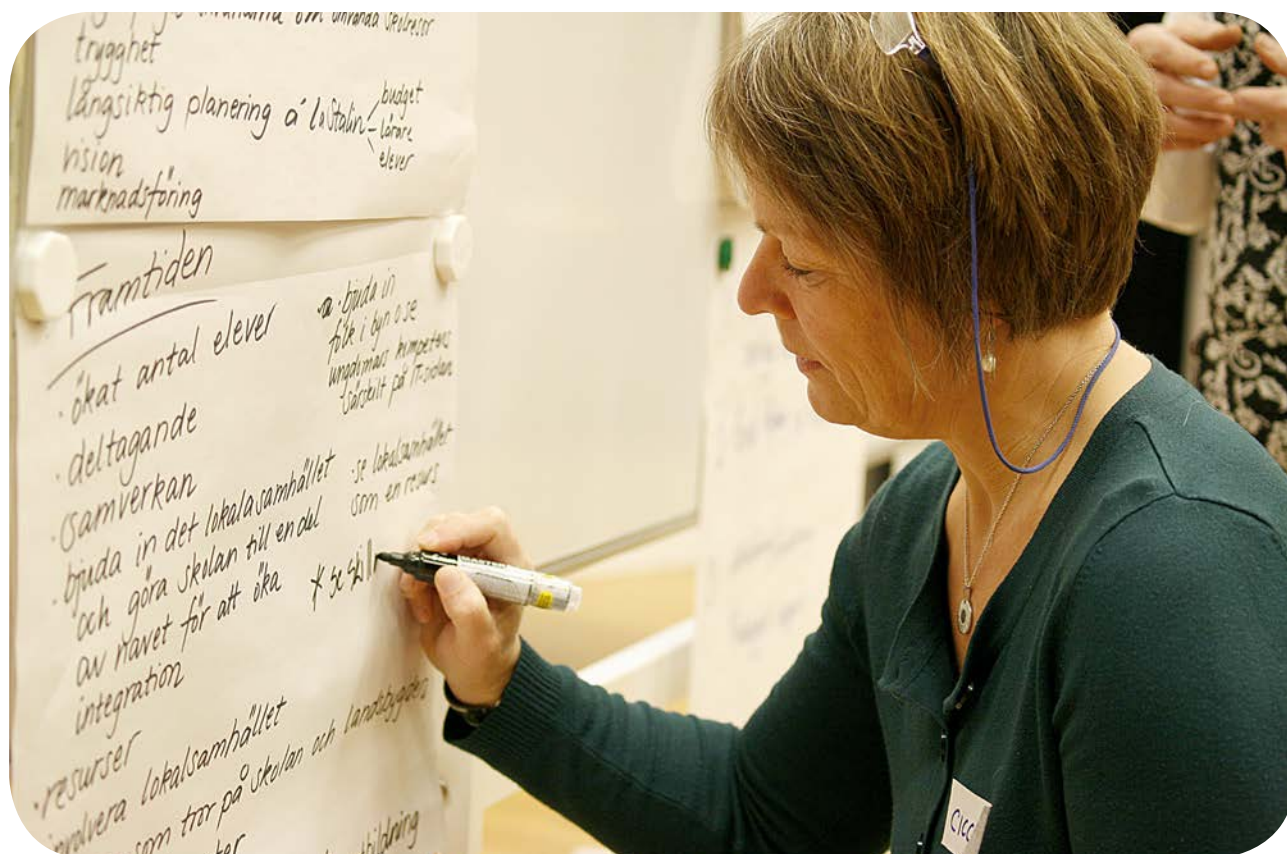 om använda skolresor
trygghet
långsiktig planering á la Stalin
budget
lärare
elever
vision
marknadsföring
Framtiden
· ökat antal elever
· deltagande
· samverkan
· bjuda in det lokalasamhället
och göra skolan till en del
av navet för att öka
integration
· resurser
involvera lokalsamhället
som tror på skolan och landsbygden
bjuda in
folk i byn o se
ungdomars kompetens
särskilt på IT-sidan
· se lokalsamhället
som en resurs
* se
MASTER